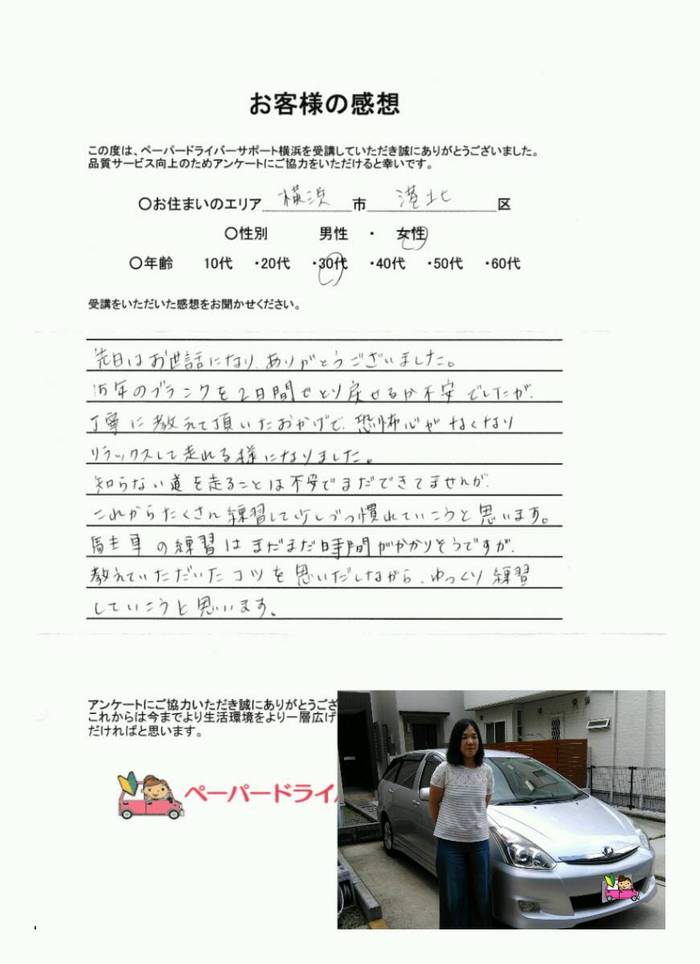 お客様の感想
この度は、ペーパードライバーサポート横浜を受講していただき誠にありがとうございました。
品質サービス向上のためアンケートにご協力をいただけると幸いです。
〇お住まいのエリア 横浜 市 港北 区
〇性別 男性 ・ 女性
〇年齢 10代 ・20代 ・30代 ・40代 ・50代 ・60代
受講をいただいた感想をお聞かせください。
先日はお世話になり、ありがとうございました。
15年のブランクを2日間でとり戻せるか不安でしたが、
丁寧に教えて頂いたおかげで、恐怖心がなくなり
リラックスして走れる様になりました。
知らない道を走ることは不安でまだできてませんが、
これからたくさん練習して少しづつ慣れていこうと思います。
駐車の練習はまだまだ時間がかかりそうですが、
教えていただいたコツを思いだしながら、ゆっくり練習
していこうと思います。
アンケートにご協力いただき誠にありがとうござ
これからは今までより生活環境をより一層広げ
だければと思います。
ペーパードライ